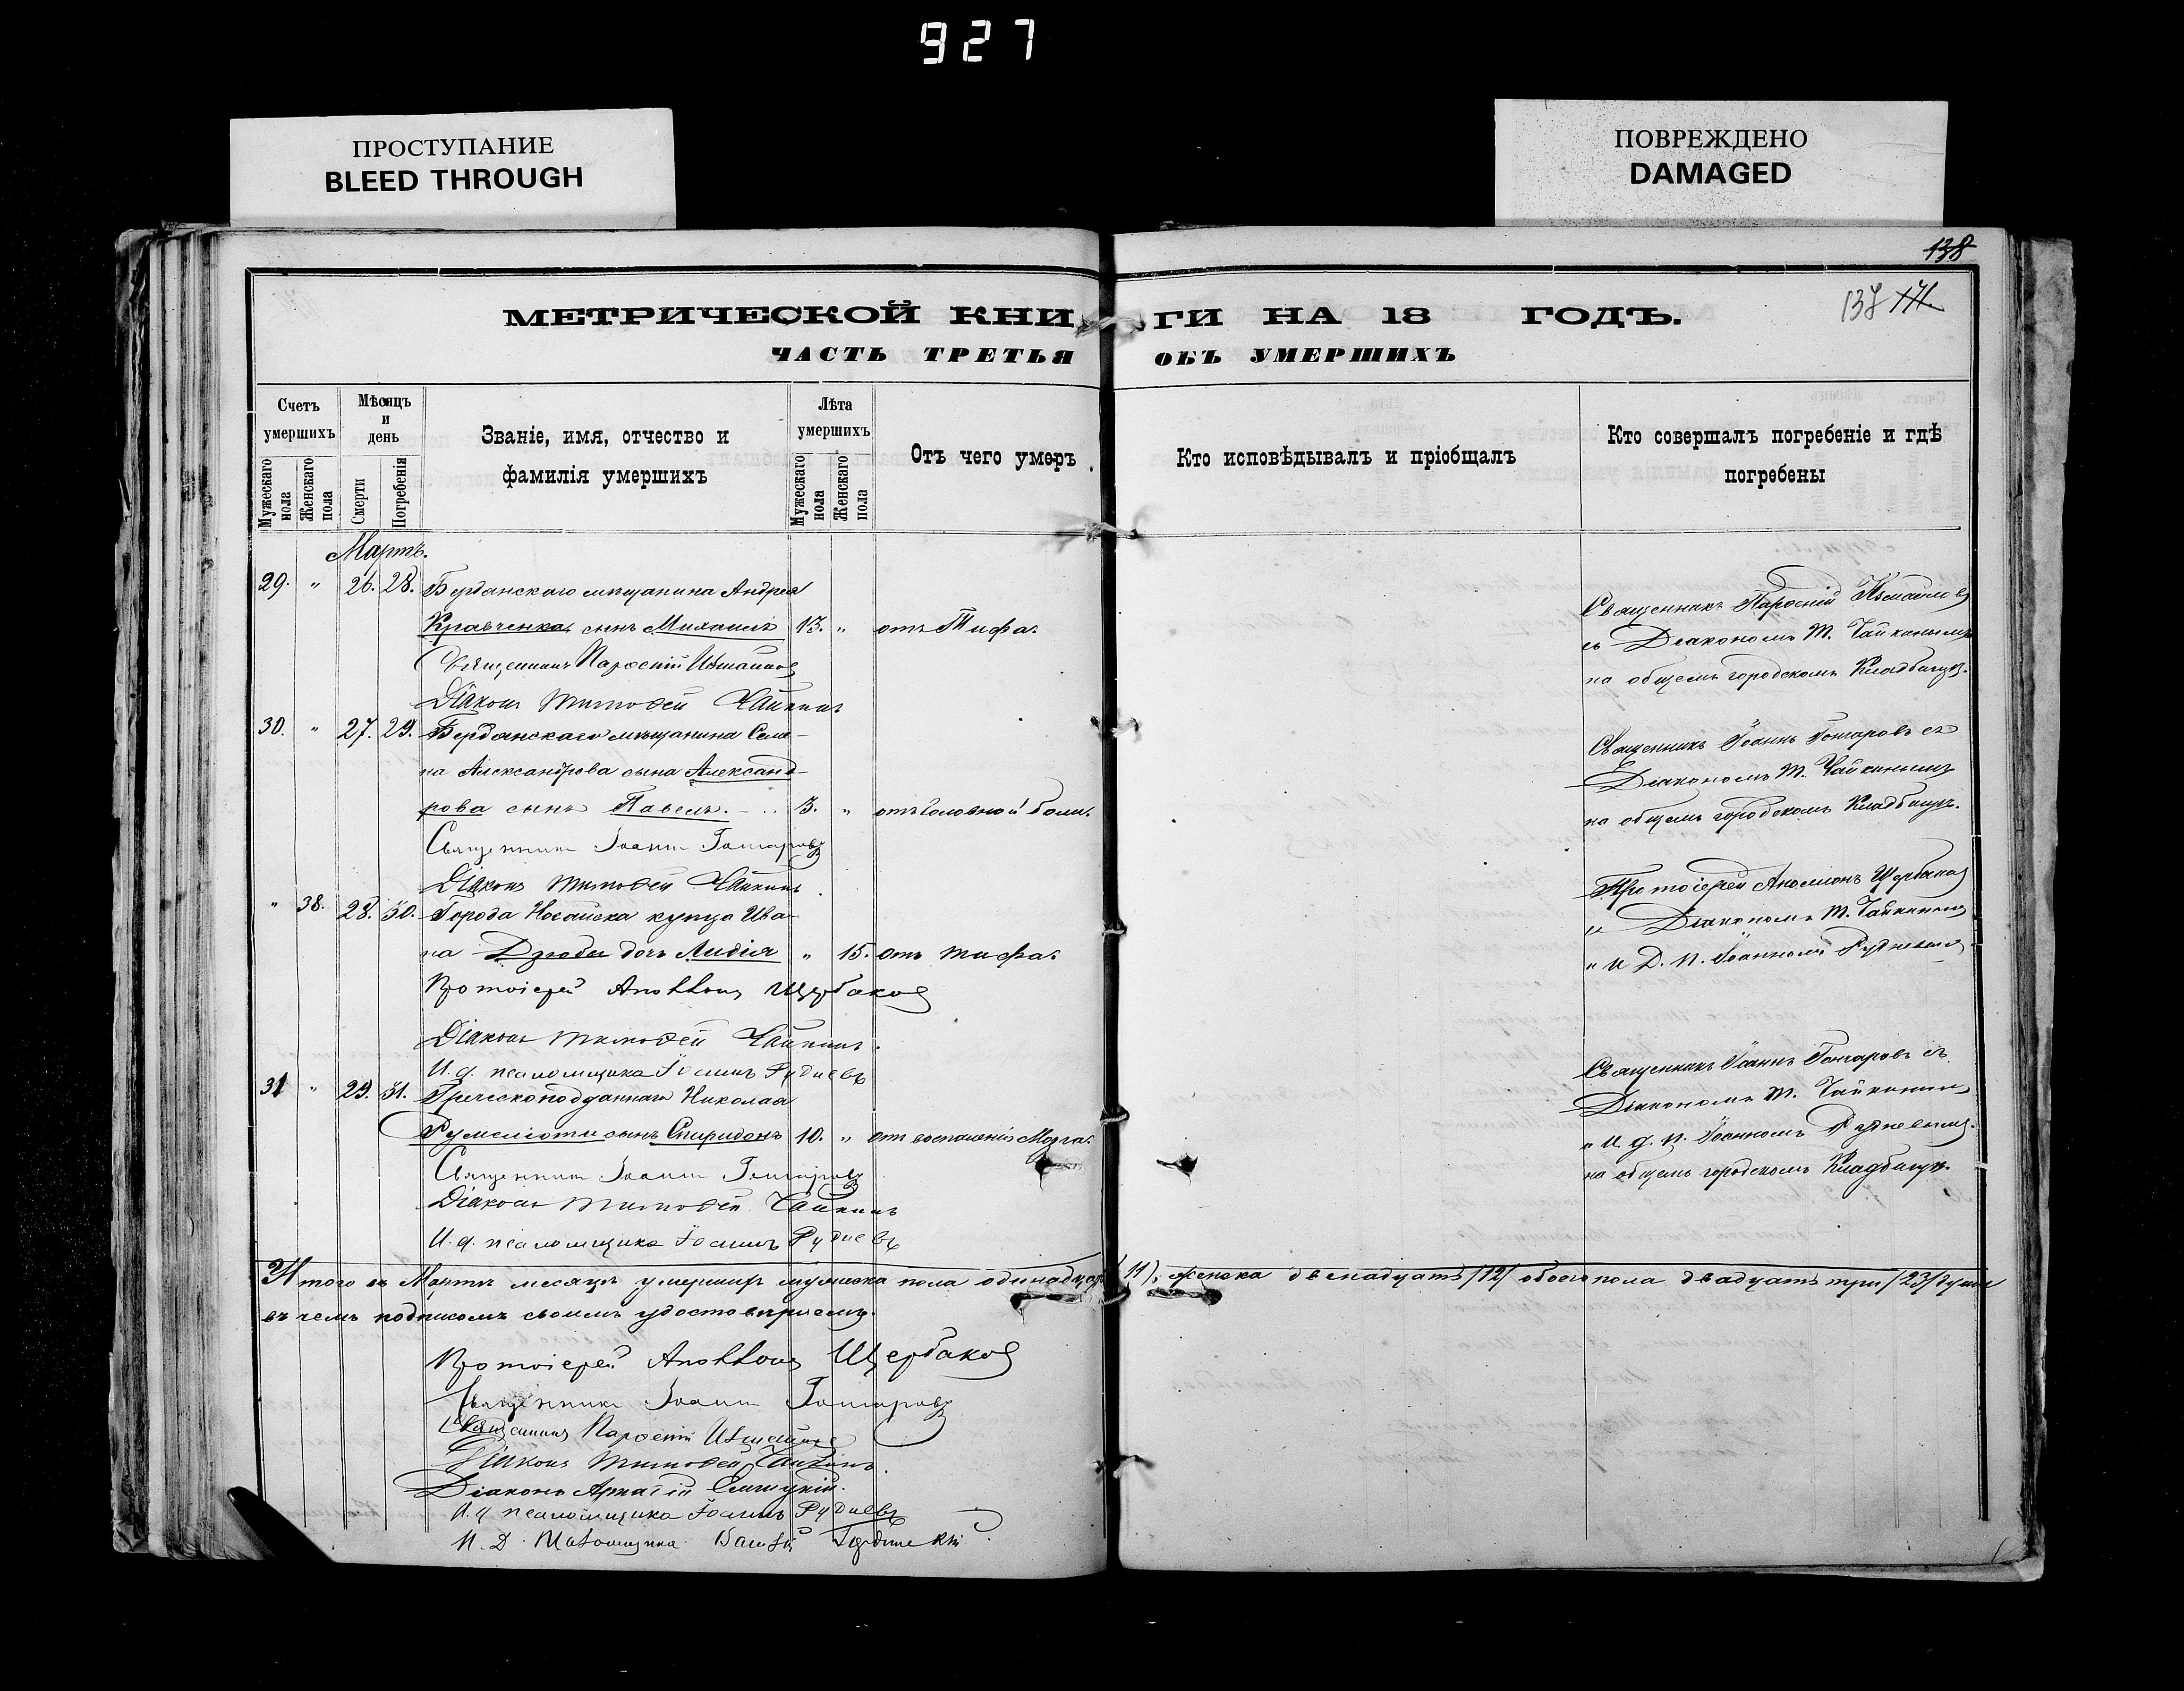 927
ПРОСТУПАНИЕ
BLEED THROUGH
ПОВРЕЖДЕНО
DAMAGED
138
137
МЕТРИЧЕСКОЙ КНИГИ НА 18 ГОДЪ.
ЧАСТЬ ТРЕТЬЯ ОБЪ УМЕРШИХЪ
Счетъ умершихъ
Мужескаго пола
Женскаго пола
Мѣсяцъ и день
Смерти
Погребенія
Званіе, имя, отчество и фамилія умершихъ
Лѣта умершихъ
Мужескаго пола
Женскаго пола
Отъ чего умеръ
Кто исповѣдывалъ и пріобщалъ
Кто совершалъ погребеніе и гдѣ погребены
Мартъ.
29. " 26. 28. Бердянскаго мѣщанина Андрея
Кравченка сынъ Михаилъ 13. " отъ Тифа.
Священникъ Парѳеній Измаиловъ
Діаконъ Тимоѳей Чайкинъ
Священникъ Парѳеній Измаиловъ
съ Діакономъ Т. Чайкинымъ
на общемъ городскомъ Кладбищѣ.
30. " 27. 29. Бердянскаго мѣщанина Семе-
на Александрова сына Александ-
рова сынъ Павелъ. 3. " отъ Головной боли.
Священникъ Іоаннъ Гончаровъ
Діаконъ Тимоѳей Чайкинъ
Священникъ Іоаннъ Гончаровъ съ
Діакономъ Т. Чайкинымъ
на общемъ городскомъ Кладбищѣ.
" 38. 28. 30. Города Ногайска купца Ива-
на дочь Лидія " 15. отъ тифа.
Протоіерей Аполлонъ Щербаковъ
Діаконъ Тимоѳей Чайкинъ.
И. д. псаломщика Іоаннъ Рудневъ
Протоіерей Аполлонъ Щербаковъ
съ Діакономъ Т. Чайкинымъ
" И. Д. П. Іоанномъ Рудневымъ
31 " 29. 31. Греческоподданнаго Николая
Румеліоти сынъ Спиридонъ 10. " отъ воспаленія Мозга.
Священникъ Іоаннъ Гончаровъ
Діаконъ Тимоѳей Чайкинъ
И. д. псаломщика Іоаннъ Рудневъ
Священникъ Іоаннъ Гончаровъ съ
Діакономъ Т. Чайкинымъ
" И. д. п. Іоанномъ Рудневымъ.
на общемъ городскомъ Кладбищѣ.
Итого въ Мартѣ месяцѣ умершихъ мужеска пола одинадцать (11), женска двенадцать /12/ обоего пола двадцать три /23/ души
въ чемъ подписомъ своимъ удостовѣряемъ.
Протоіерей Аполлонъ Щербаковъ
Священникъ Іоаннъ Гончаровъ
Священникъ Парѳеній Измаиловъ
Діаконъ Тимоѳей Чайкинъ.
Діаконъ
И. д. псаломщика Іоаннъ Рудневъ
И. Д. Псаломщика